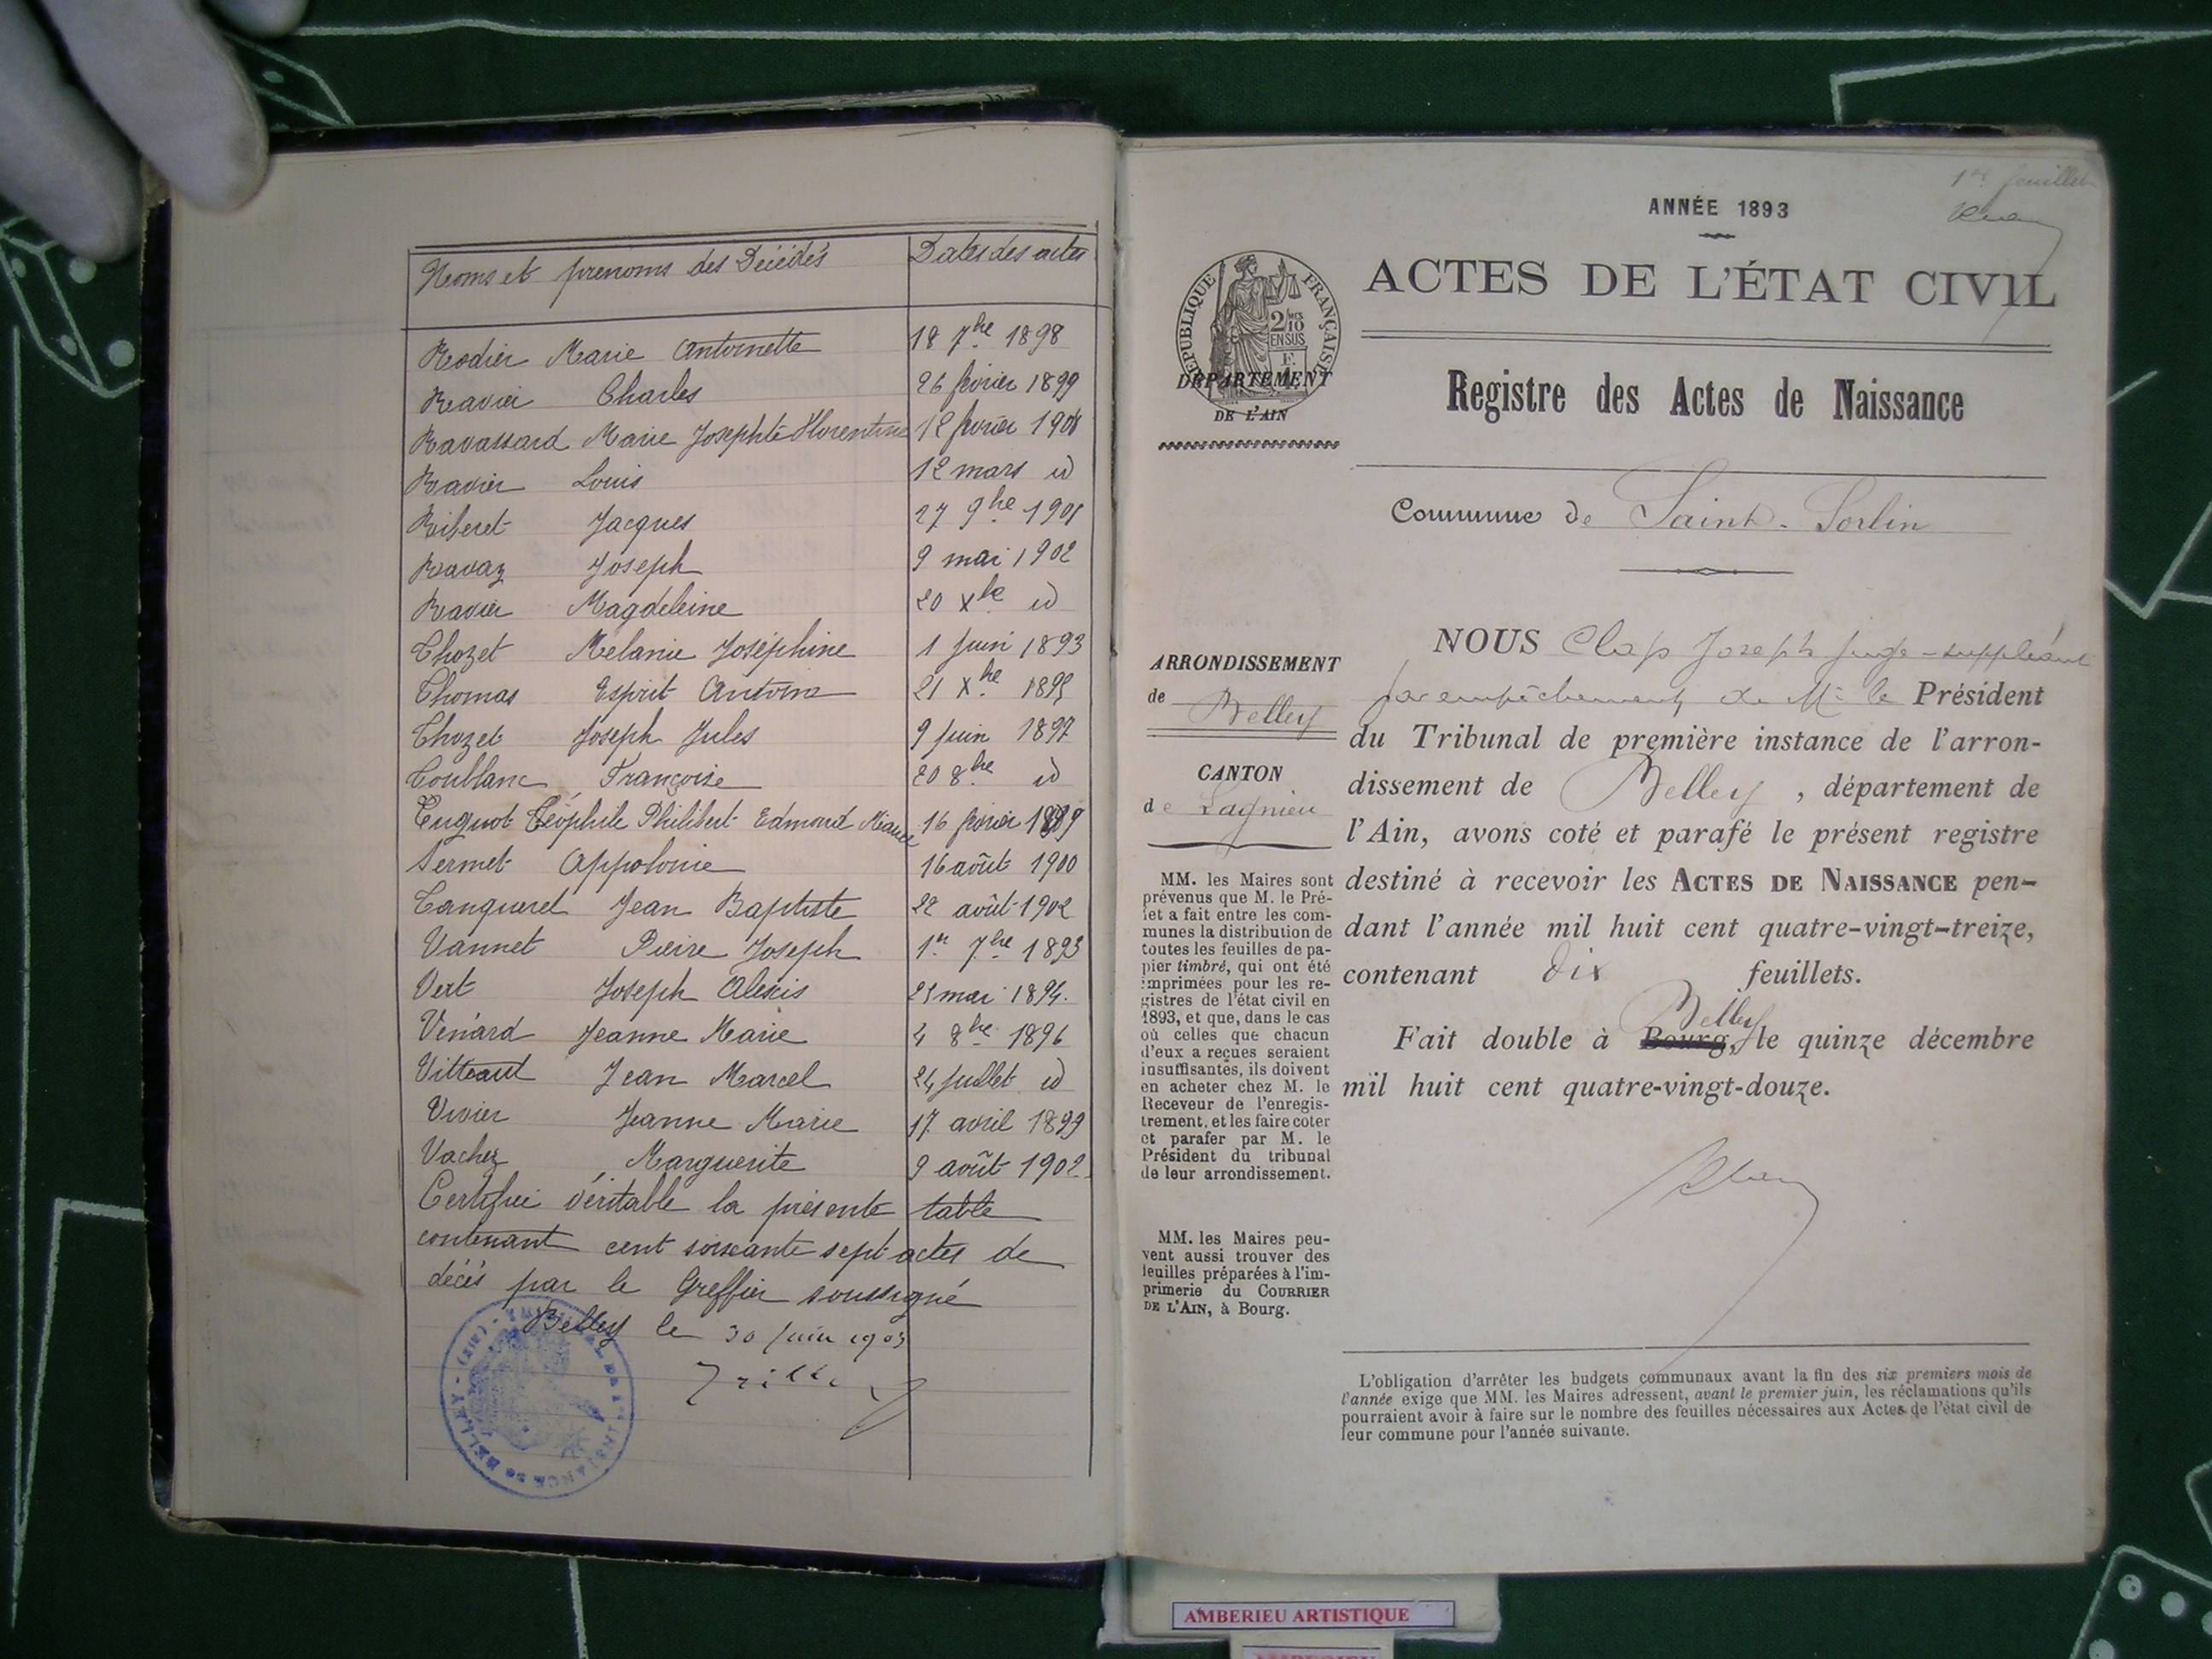 Noms et prénoms des Décédés | Dates des actes
Rodier Marie Antoinette | 18 7bre 1898
Ravier Charles | 26 février 1899
Ravassard Marie Josephte Florentine | 12 février 1901
Ravier Louis | 12 mars id
Riberet Jacques | 27 9bre 1901
Ravaz Joseph | 9 mai 1902
Ravier Magdeleine | 20 Xbre id
Thozet Mélanie Joséphine | 1 Juin 1893
Thomas Esprit Antoine | 21 Xbre 1895
Thozet Joseph Jules | 9 Juin 1897
Toublanc Françoise | 20 8bre id
Tuguot Téophile Philibert Edmond | 16 février 1899
Sermet Appolonie | 16 août 1900
Tanqueret Jean Baptiste | 22 août 1902
Vannet Pierre Joseph | 1er 7bre 1893
Vert Joseph Alexis | 25 mai 1894
Vénard Jeanne Marie | 4 8bre 1896
Vitteaut Jean Marcel | 24 Juillet id
Vivier Jeanne Marie | 17 avril 1899
Vachez Marguerite | 9 août 1902
Certifié véritable la présente table
contenant cent soixante sept actes de
décès par le Greffier soussigné
Belley le 30 Juin 1903
1er feuillet
ANNÉE 1893
ACTES DE L'ÉTAT CIVIL
RÉPUBLIQUE FRANÇAISE
2/10 MES
EN SUS
DÉPARTEMENT
DE L'AIN
Registre des Actes de Naissance
Commune de Saint-Sorlin
ARRONDISSEMENT
de Belley
CANTON
de Lagnieu
MM. les Maires sont
prévenus que M. le Pré-
fet a fait entre les com-
munes la distribution de
toutes les feuilles de pa-
pier timbré, qui ont été
imprimées pour les re-
gistres de l'état civil en
1893, et que, dans le cas
où celles que chacun
d'eux a reçues seraient
insuffisantes, ils doivent
en acheter chez M. le
Receveur de l'enregis-
trement, et les faire coter
et parafer par M. le
Président du tribunal
de leur arrondissement.
MM. les Maires peu-
vent aussi trouver des
feuilles préparées à l'im-
primerie du COURRIER
DE L'AIN, à Bourg.
NOUS Clap Joseph juge-suppléant
par empêchement de Mr le Président
du Tribunal de première instance de l'arron-
dissement de Belley, département de
l'Ain, avons coté et parafé le présent registre
destiné à recevoir les ACTES DE NAISSANCE pen-
dant l'année mil huit cent quatre-vingt-treize,
contenant dix feuillets.
Belley
Fait double à Bourg, le quinze décembre
mil huit cent quatre-vingt-douze.
L'obligation d'arrêter les budgets communaux avant la fin des six premiers mois de
l'année exige que MM. les Maires adressent, avant le premier juin, les réclamations qu'ils
pourraient avoir à faire sur le nombre des feuilles nécessaires aux Actes de l'état civil de
leur commune pour l'année suivante.
AMBERIEU ARTISTIQUE
AMBERIEU